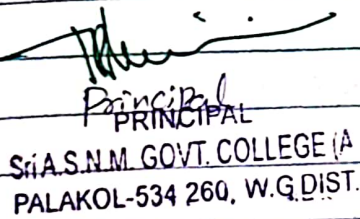 Principal
PRINCIPAL
Sri A.S.N.M. GOVT. COLLEGE (A
PALAKOL-534 260, W.G.DIST.